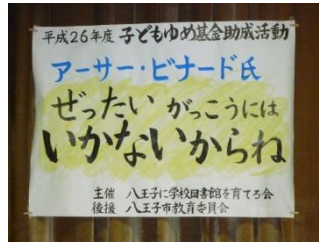 平成26年度 子どもゆめ基金助成活動
アーサー・ビナード氏
ぜったい がっこうには
いかないからね
主催 八王子に学校図書館を育てる会
後援 八王子市教育委員会